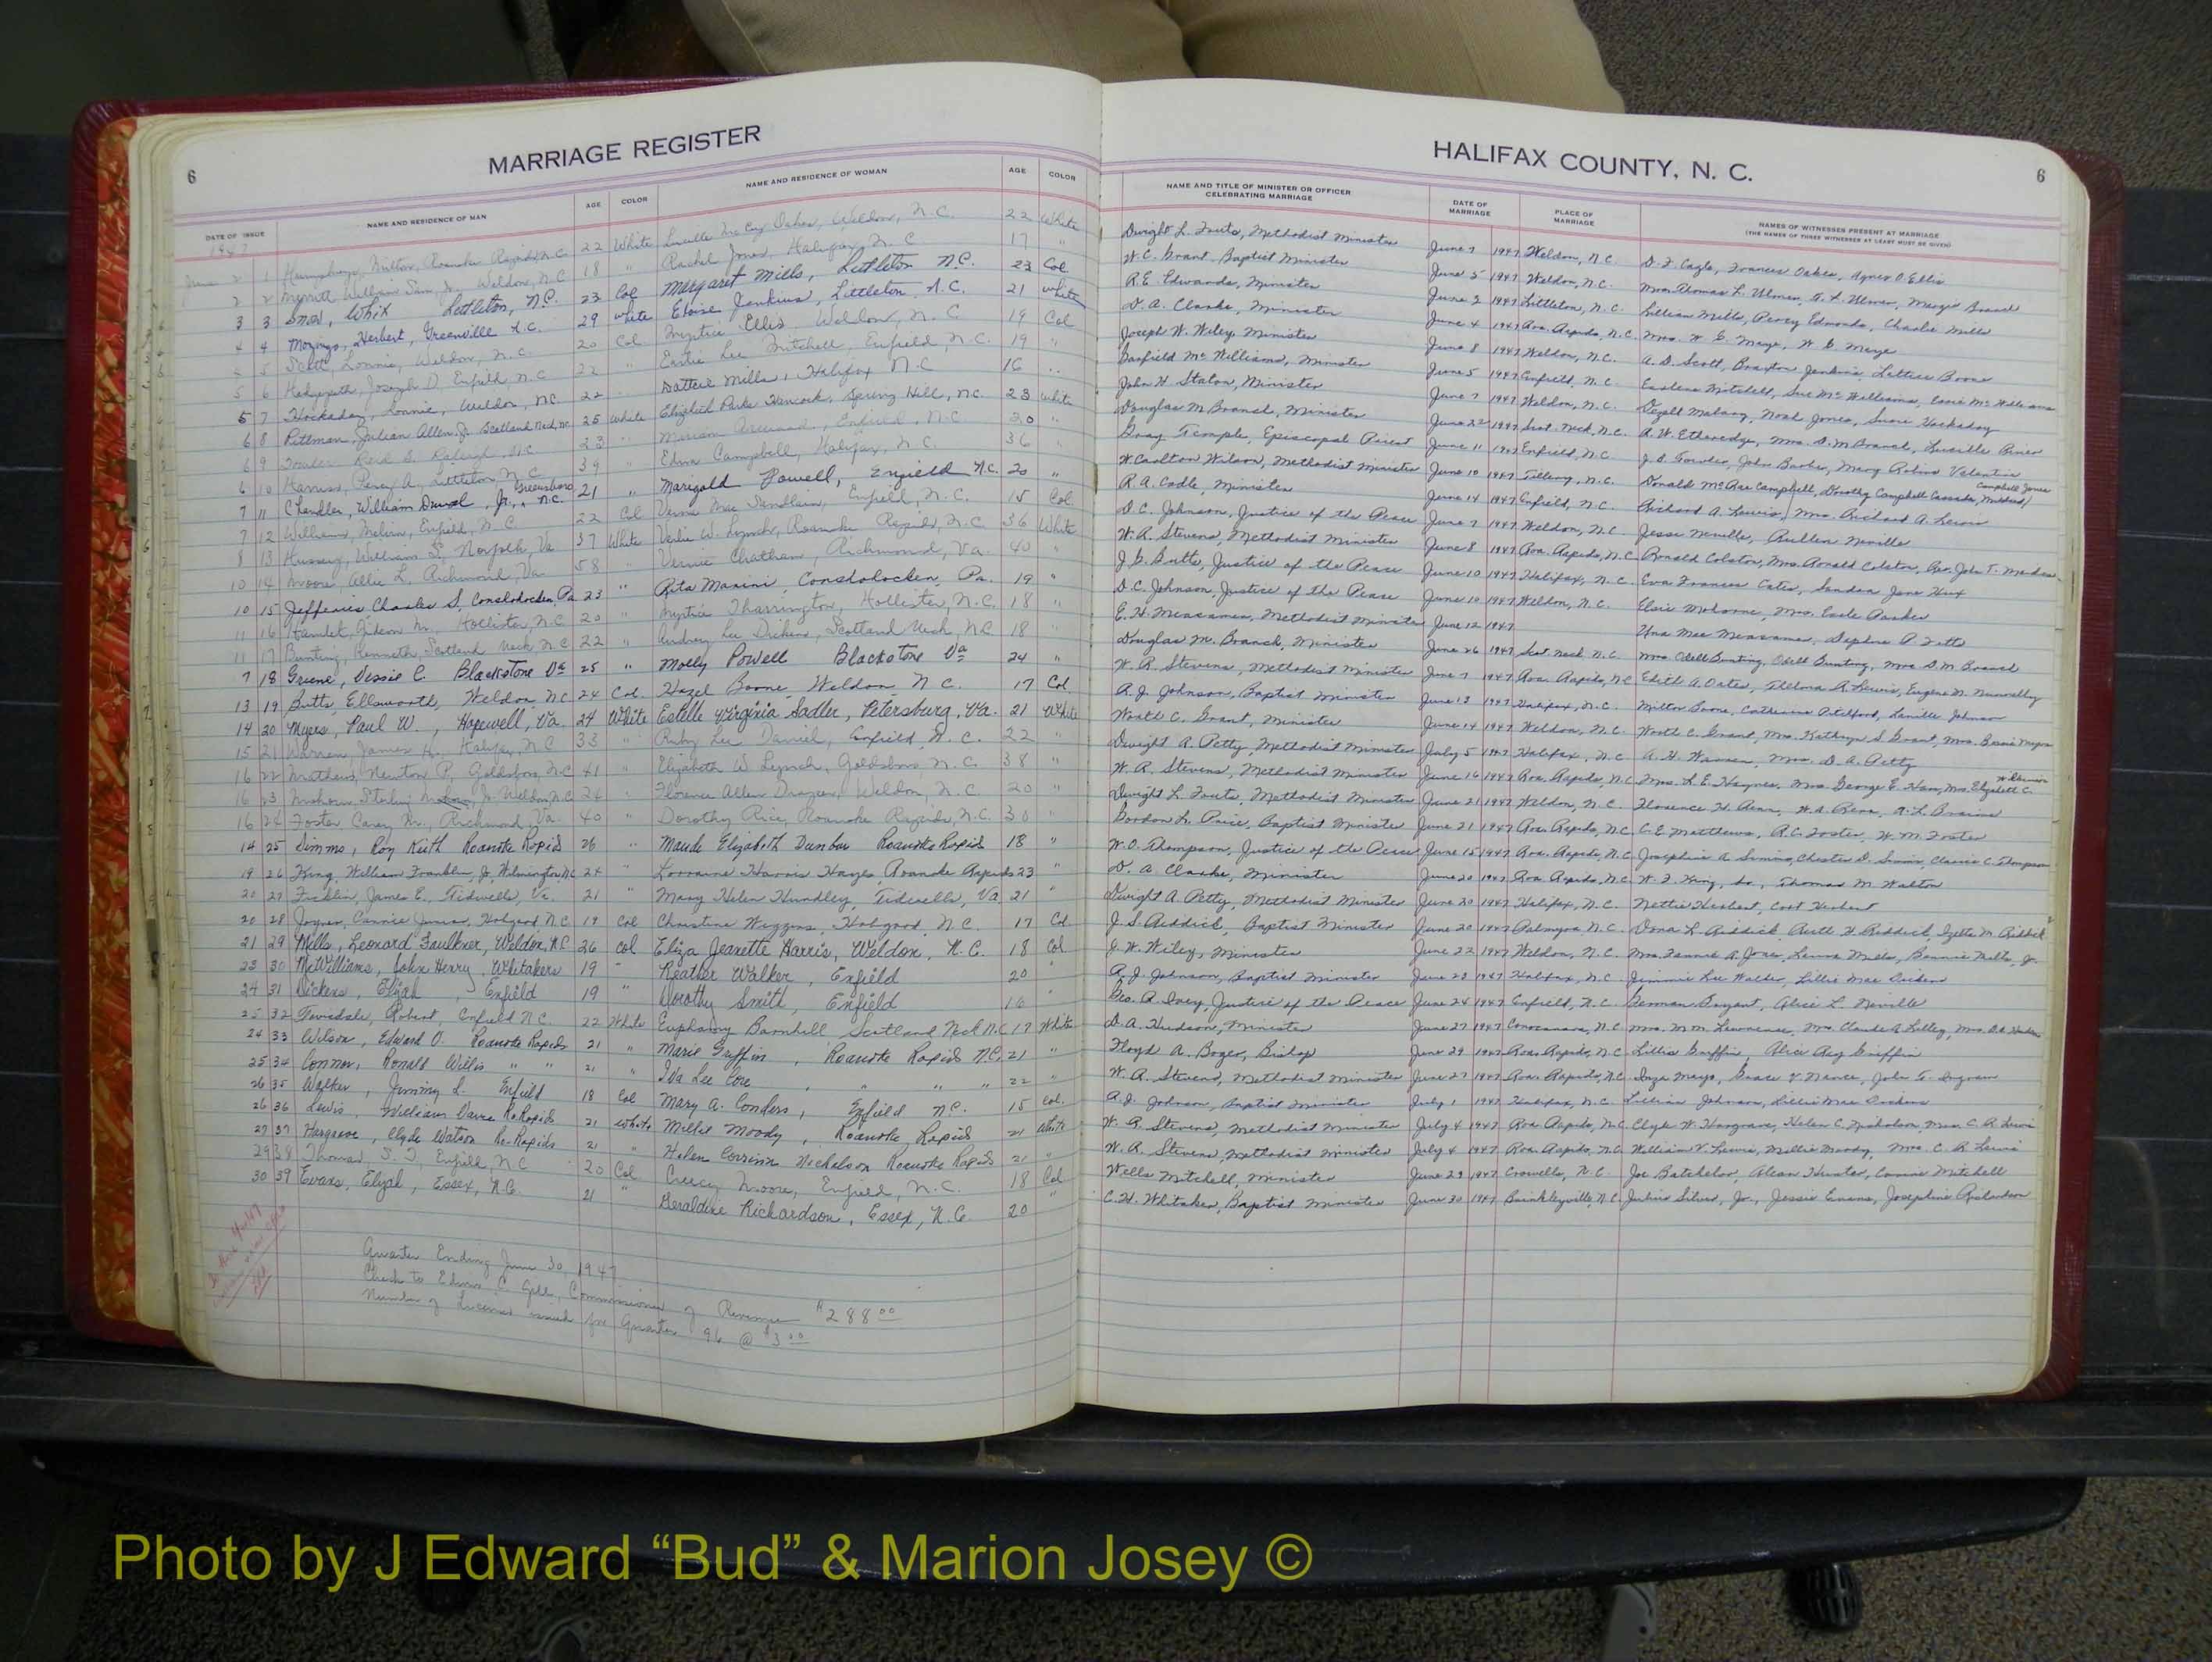 6
MARRIAGE REGISTER
DATE OF ISSUE
NAME AND RESIDENCE OF MAN
AGE
COLOR
NAME AND RESIDENCE OF WOMAN
AGE
COLOR
1947
June 2 1 Humphreys, Milton, Roanoke Rapids, N.C. 22 White Lucille McCoy Oakes, Weldon, N.C. 22 White
2 2 Merritt, William Sam, Jr., Weldon, N.C. 18 " Rachel Jones, Halifax, N.C. 17 "
3 3 Littleton, N.C. 23 Col Margaret Mills, Littleton N.C. 23 Col.
4 4 Herbert, Greenville N.C. 29 white Eloise Jenkins, Littleton, N.C. 21 white
5 Scott, Lonnie, Weldon, N.C. 20 Col. Ellis Weldon, N.C. 19 Col
5 6 Joseph D. Enfield, N.C. 22 " Lee Mitchell, Enfield, N.C. 19 "
5 7 Hockaday, Lonnie, Weldon, N.C. 22 Mills, Halifax N.C. 16
6 8 Pittman, Julian Allen, Jr. Scotland Neck, N.C. 25 White Elizabeth Parks Hancock, Spring Hill, N.C. 23 white
6 9 Raleigh, N.C. 23 " Enfield, N.C. 20 "
6 10 Percy A. Littleton N.C. 39 " Edna Campbell, Halifax, N.C. 36 "
7 11 Chandler, William Duval, Jr., Greensboro N.C. 21 " Marigold Howell, Enfield N.C. 20 "
7 12 Williams, Melvin, Enfield, N.C. 22 Col Verna Mae Enfield, N.C. 15 Col.
8 13 William S. Norfolk, Va 37 White Verlie W. Lynch, Roanoke Rapids, N.C. 36 White
10 14 Moore, Allie L. Richmond, Va 58 " Chatham, Richmond, Va. 40 "
10 15 Jefferies Charles S, Conshohocken, Pa 23 " Rita Conshohocken, Pa. 19 "
11 16 Hamlet, Gideon M. Hollister, N.C. 20 " Myrtice Tharrington, Hollister, N.C. 18 "
11 17 Bunting, Kenneth, Scotland Neck N.C. 22 " Audrey Lee Dickens, Scotland Neck, N.C. 18 "
7 18 Greene, C. Blackstone Va 25 " Molly Powell Blackstone Va 24 "
13 19 Butts, Ellsworth, Weldon, N.C. 24 Col. Hazel Boone, Weldon, N.C. 17 Col
14 20 Myers, Paul W., Hopewell, Va. 24 White Estelle Virginia Sadler, Petersburg, Va. 21 White
15 21 Warren, James H., Halifax, N.C. 33 " Ruby Lee Daniel, Enfield, N.C. 22 "
16 22 Mathews, Newton P., Goldsboro, N.C. 41 " Elizabeth W Lynch, Goldsboro N.C. 38 "
16 23 Sterling Jr. Weldon, N.C. 24 " Florence Allen Weldon, N.C. 20 "
16 24 Foster Carey M., Richmond, Va. 40 " Dorothy Roanoke Rapids, N.C. 30 "
14 25 Simms, Roy Keith Roanoke Rapids 26 " Maude Elizabeth Dunbar Roanoke Rapids 18 "
19 26 King, William Franklin, Jr., Wilmington, N.C. 24 " Lorraine Harris Hayes, Roanoke Rapids 23 "
20 27 James E., Tidewells, Va. 21 " Mary Helen Hundley, Tidewells, Va 21 "
20 28 Joyner, Junior, Hobgood N.C. 19 Col Christine Wiggins, Hobgood, N.C. 17 Col.
21 29 Mills, Leonard Faulkner, Weldon, N.C. 26 col Eliza Jeanette Harris, Weldon, N.C. 18 Col
23 30 McWilliams, John Henry, Whitakers 19 " Heather Walker, Enfield 20 "
24 31 Dickens, Elijah, Enfield 19 " Dorothy Smith, Enfield 16 "
25 32 Robert Enfield N.C. 22 White Barnhill, Scotland Neck N.C. 17 White
24 33 Wilson, Edward O. Roanoke Rapids 21 " Marie Griffin, Roanoke Rapids N.C. 21 "
25 34 Conner, Ronald Willis " " 21 " Iva Lee " " " 22 "
26 35 Walker, Jimmy L. Enfield 18 Col Mary A. Conders, Enfield N.C. 15 Col.
26 36 Lewis, William R. Rapids 21 white Millie Moody, Roanoke Rapids 21 white
27 37 Hargrove, Clyde Watson R. Rapids 21 " Helen Nicholson Roanoke Rapids 21 "
29 38 Thomas, Enfield, N.C. 20 Col Creecy Moore, Enfield, N.C. 18 Col
30 39 Evans, Elijah, Essex, N.C. 21 " Geraldine Richardson, Essex, N.C. 20 "
Quarter Ending June 30 1947
Check to Edwin C. Gill, Commissioner of Revenue $288.00
Number of Licenses issued for Quarter 96 @ $3.00
HALIFAX COUNTY, N. C.
6
NAME AND TITLE OF MINISTER OR OFFICER
CELEBRATING MARRIAGE
DATE OF
MARRIAGE
PLACE OF
MARRIAGE
NAMES OF WITNESSES PRESENT AT MARRIAGE
(THE NAMES OF THREE WITNESSES AT LEAST MUST BE GIVEN)
Dwight L. Fouts, Methodist Minister June 7 1947 Weldon, N.C. Frances Oakes, Agnes O Ellis
W.C. Grant, Baptist Minister June 5 1947 Weldon, N.C. Mrs. Thomas L. Ulmer, T. L. Ulmer, Margie
R.E. Edwards, Minister June 2 1947 Littleton, N.C. Lillian Mills, Percy Edmonds, Charlie Mills
D. A. Clarke, Minister June 4 1947 Roa. Rapids, N.C.
Joseph W. Wiley, Minister June 8 1947 Weldon, N.C. A. D. Scott, Braxton Jenkins, Lettice Boone
Garfield McWilliams, Minister June 5 1947 Enfield, N.C. Earlene Mitchell, Sue McWilliams, Essie McWilliams
John H. Staton, Minister June 7 1947 Weldon, N.C. Noah Jones, Susie Hockaday
Douglas M Branch, Minister June 22 1947 Scot. Neck, N.C. A. W. Etheredge, Mrs. D. M. Branch, Lucille
Gray Temple, Episcopal Priest June 11 1947 Enfield, N.C. John Barber, Mary Valentine
W. Carlton Wilson, Methodist Minister June 10 1947 Tillery, N.C. Donald McRae Campbell, Dorothy Campbell
R. A. Cadle, Minister June 14 1947 Enfield, N.C. Richard A. Lewis, Mrs. Richard A. Lewis
D. C. Johnson, Justice of the Peace June 7 1947 Weldon, N.C. Jesse Neville, Neville
W. R. Stevens, Methodist Minister June 8 1947 Roa. Rapids, N.C. Ronald Colston, Mrs. Ronald Colston, Rev. John T.
J. G. Butts, Justice of the Peace June 10 1947 Halifax, N.C. Eva Frances Cates, Sandra Jane
D.C. Johnson, Justice of the Peace June 10 1947 Weldon, N.C. Elsie Mrs. Earle Parker
E. H. Measamer, Methodist Minister June 12 1947 Una Mae Measamer,
Douglas M. Branch, Minister June 26 1947 Scot Neck N.C. Mrs Odell Bunting, Odell Bunting, Mrs D.M. Branch
W. R. Stevens, Methodist Minister June 7 1947 Roa. Rapids, N.C. Edith A. Oates, Thelma R. Lewis, Eugene M.
A. J. Johnson, Baptist Minister June 13 1947 Halifax, N.C. Milton Boone, Catherine Johnson
Worth C. Grant, Minister June 14 1947 Weldon, N.C. Worth C. Grant, Mrs. Kathryn S. Grant, Mrs. Myers
Dwight A. Petty, Methodist Minister July 5 1947 Halifax, N.C. A. H. Warren, Mrs. D. A. Petty
W. R. Stevens, Methodist Minister June 16 1947 Roa. Rapids, N.C. Mrs. L. E. Haynes, Mrs. George E. Mrs. Elizabeth C.
Dwight L. Fouts, Methodist Minister June 21 1947 Weldon, N.C. Florence H.
Gordon L. Price, Baptist Minister June 21 1947 Roa. Rapids, N.C. C. E. Matthews, R.C. Foster, W. M. Foster
W. O. Thompson, Justice of the Peace June 15 1947 Roa. Rapids, N.C. Josephine A. Simms, Chester D. Simms, C. Thompson
D. A. Clarke, Minister June 20 1947 Roa Rapids, N.C. W. F. King, Sr., Thomas M. Walton
Dwight A. Petty, Methodist Minister June 20 1947 Halifax, N.C. Nettie Herbert, Herbert
J. S. Riddick, Baptist Minister June 20 1947 Palmyra N.C. Dona L. Riddick, Ruth H. Riddick, M. Riddick
J. W. Wiley, Minister June 22 1947 Weldon, N.C. Mrs. Fannie A. Jones,
A. J. Johnson, Baptist Minister June 23 1947 Halifax, N.C. Jimmie Lee Walker, Lillie Mae Dickens
Geo. R. Ivey, Justice of the Peace June 24 1947 Enfield, N.C. Herman Bryant, Alice L. Neville
D. A. Hudson, Minister June 27 1947 Mrs. M. M. Lawrence, Mrs. Claude A. Lilley,
Floyd A. Boger, Bishop June 29 1947 Roa. Rapids, N.C. Lillie Griffin, Alice Ray Griffin
W. R. Stevens, Methodist Minister June 27 1947 Roa. Rapids, N.C. Grace V. Nance, John T. Ingram
A. J. Johnson, Baptist Minister July 1 1947 Halifax, N.C. Lillian Johnson, Lillie Mae Dickens
W. R. Stevens, Methodist Minister July 4 1947 Roa. Rapids, N.C. Clyde W. Hargrove, Helen C. Nicholson, Mrs. C. R. Lewis
W. R. Stevens, Methodist Minister July 4 1947 Roa. Rapids, N.C. William V. Lewis, Millie Moody, Mrs. C. R. Lewis
Wells Mitchell, Minister June 29 1947 Crowells, N.C. Joe Batchelor, Hunter, Connie Mitchell
C. H. Whitaker, Baptist Minister June 30 1947 Brinkleyville, N.C. Julius Silver, Jr., Jessie Evans, Josephine Richardson
Photo by J Edward “Bud” & Marion Josey ©